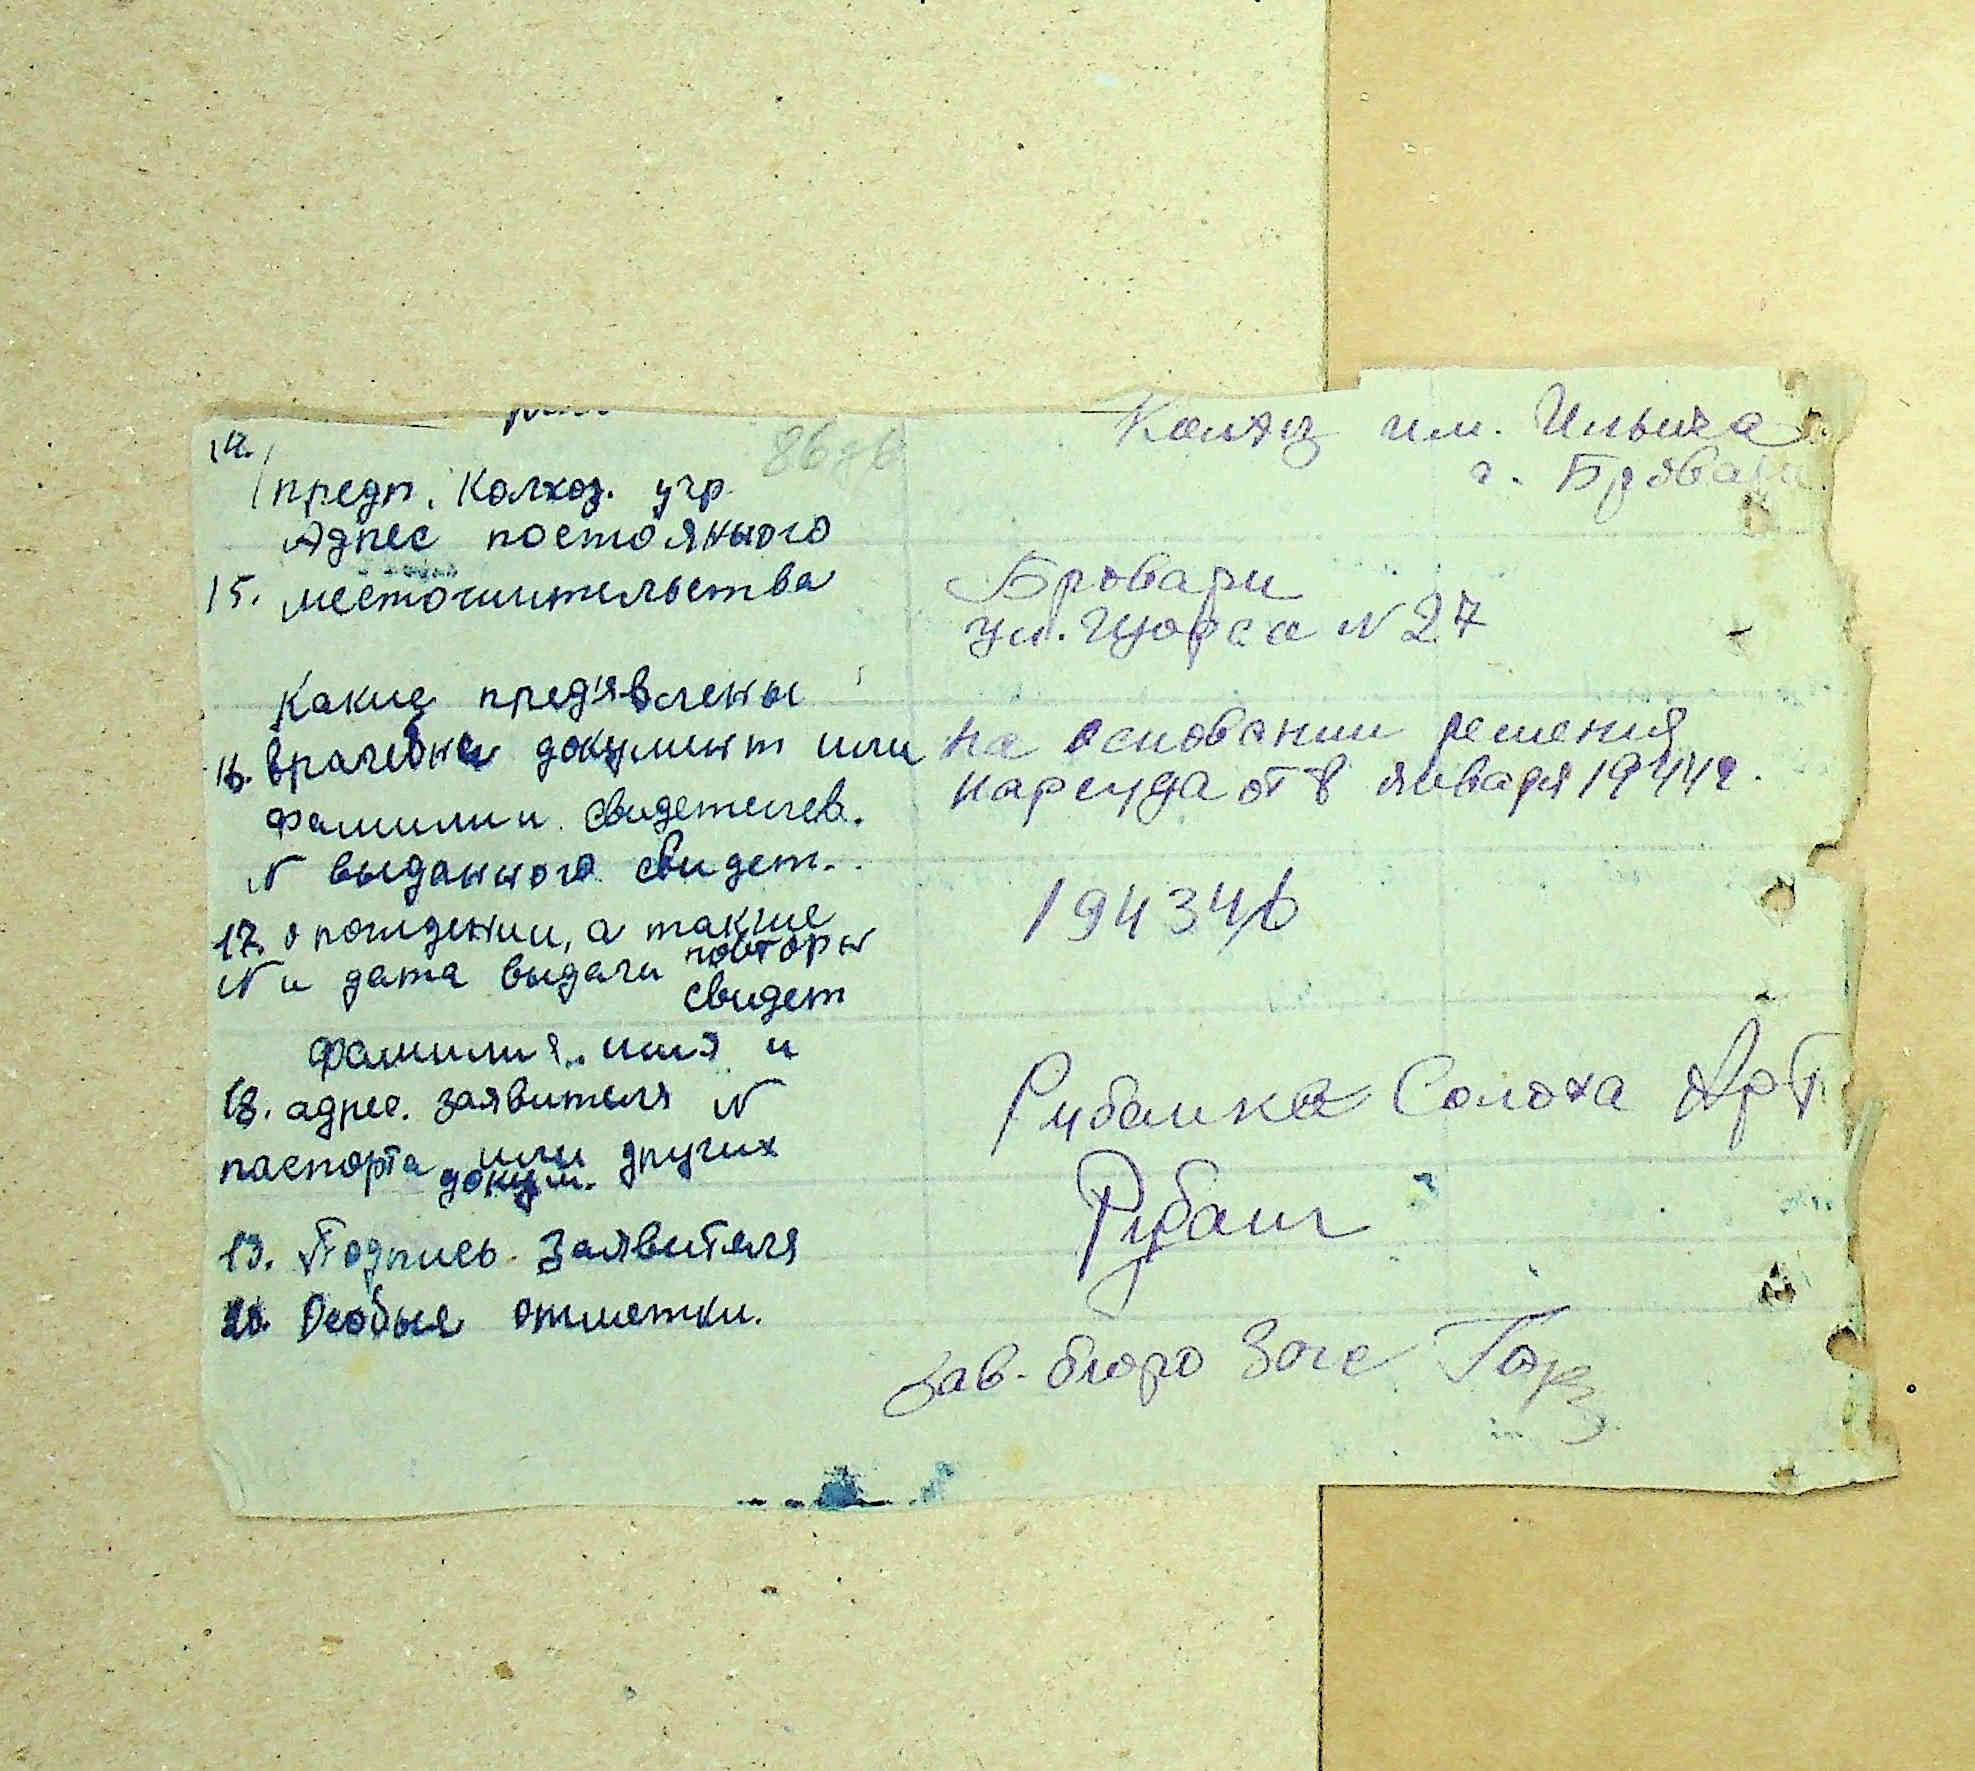 14.
предп. Колхоз. учр.
им. Ильича
г. Бровари
Адрес постоянного
15. местожительства
Бровари
ул. Щорса N 27
Какие предъявлены
16. врачебни документ или
фамилии свидетелев.
на основании решения
нарсуда от 8 января 1944 г.
N выданного свидет.
17. о рождении, а также
N и дата выдачи повторн
свидет
194346
фамилия, имя и
18. адрес. заявителя N
паспорта или других
докум.
Солоха Арт
19. Подпись заявителя
Рубан
20. Особые отметки.
Зав. бюро Загс